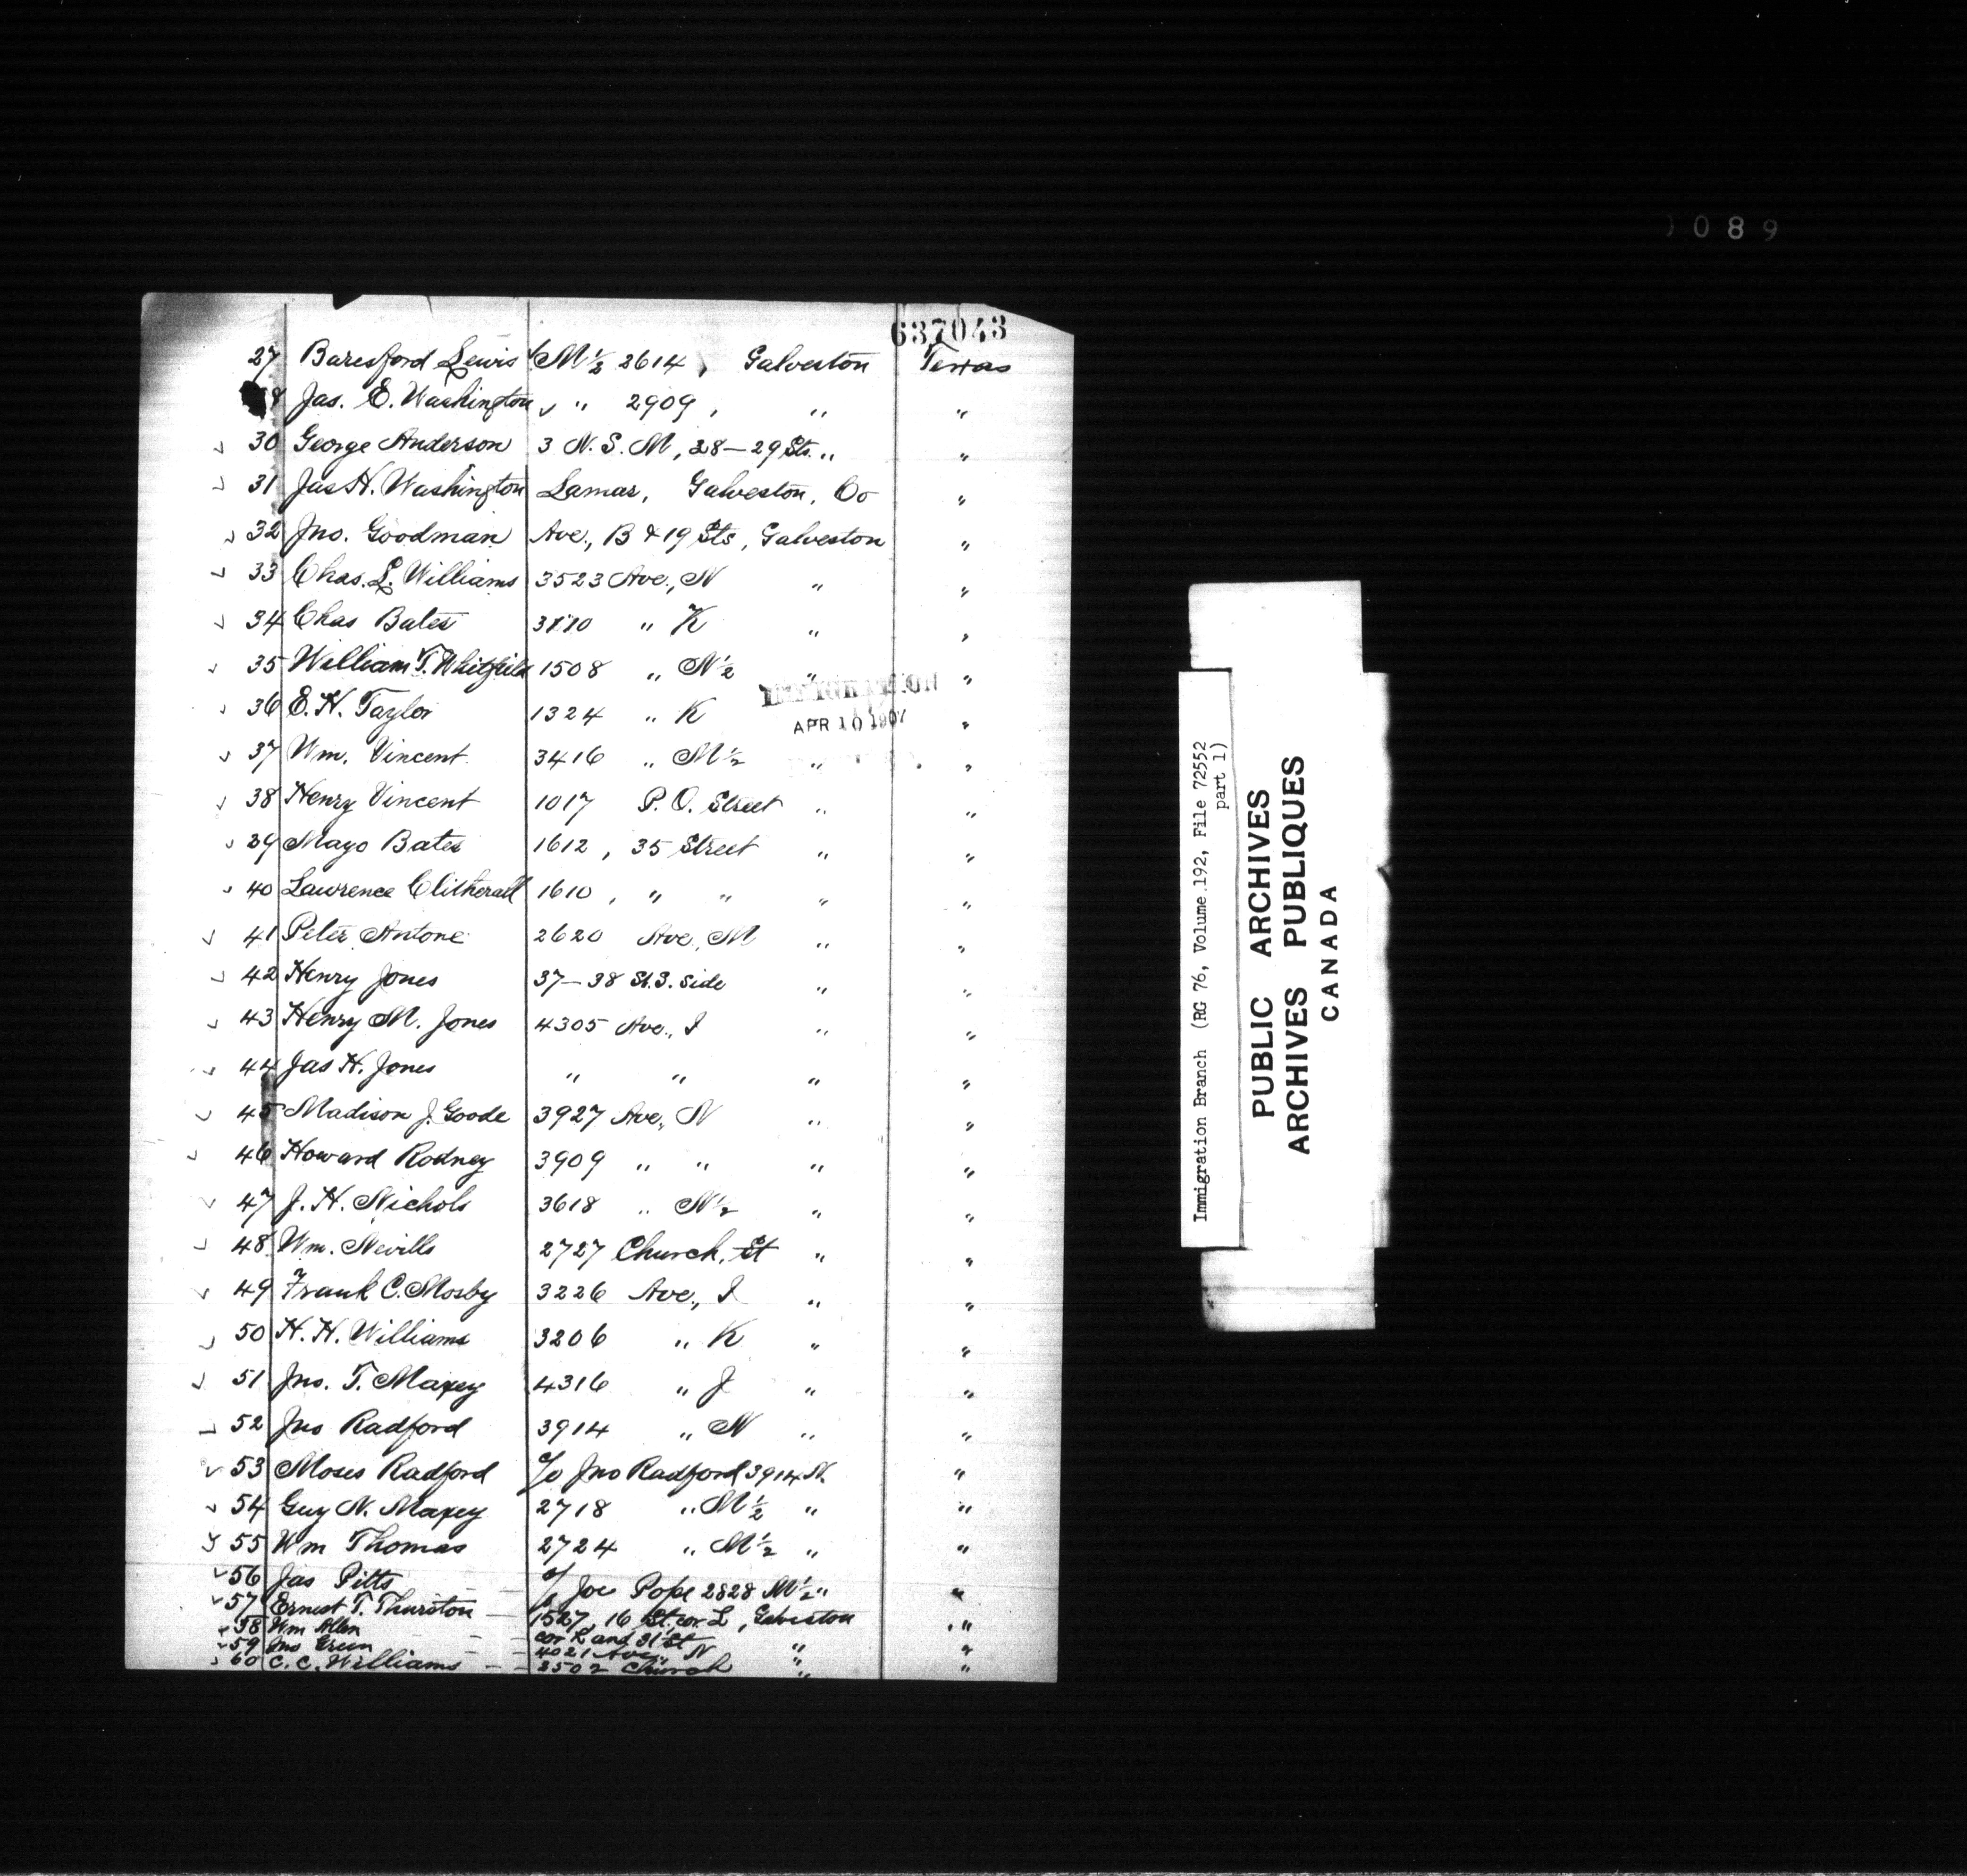 089
637043
27 Baresford Lewis M½ 2614, Galveston Texas
8 Jas. E. Washington " 2909, " "
30 George Anderson 3 N. S. M, 28—29 Sts. " "
31 Jas H. Washington Lamar, Galveston, Co "
32 Jno. Goodman Ave., B & 19 Sts, Galveston "
33 Chas. L. Williams 3523 Ave., N " "
34 Chas Bates " K " "
35 William T. Whitfield 1508 " N½ " "
IMMIGRATION
36 E. H. Taylor 1324 " K "
APR 10 1907
37 Wm. Vincent 3416 " M½ " "
38 Henry Vincent 1017 P. O. Street " "
39 Mayo Bates 1612, 35 Street " "
40 Lawrence Clitherall 1610, " " " "
41 Peter Antone 2620 Ave, M " "
42 Henry Jones 37—38 St. S. Side " "
43 Henry M. Jones 4305 Ave., I " "
44 Jas H. Jones " " " "
45 Madison J. Goode 3927 Ave., N " "
46 Howard Rodney 3909 " " " "
47 J. H. Nichols 3618 " N½ " "
48 Wm. Nevills 2727 Church, St " "
49 Frank C. Mosby 3226 Ave., I " "
50 H. H. Williams 3206 " K " "
51 Jno. T. Maxey 4316 " J " "
52 Jno Radford 3914 " N " "
53 Moses Radford c/o Jno Radford 3914 N. "
54 Guy N. Maxey 2718 " M½ " "
55 Wm Thomas 2724 " M½ " "
56 Jas Pitts c/o Joe Pope 2828 M½ " "
57 Ernest T. Thurston — 1527, 16 St. cor. L, Galveston "
58 Wm Allen cor K and 31 St "
59 Jno Green 4021 Ave., N " "
60 C. C. Williams — — 2502 Church " "
Immigration Branch (RG 76, Volume 192, File 72552
part 1)
PUBLIC ARCHIVES
ARCHIVES PUBLIQUES
CANADA